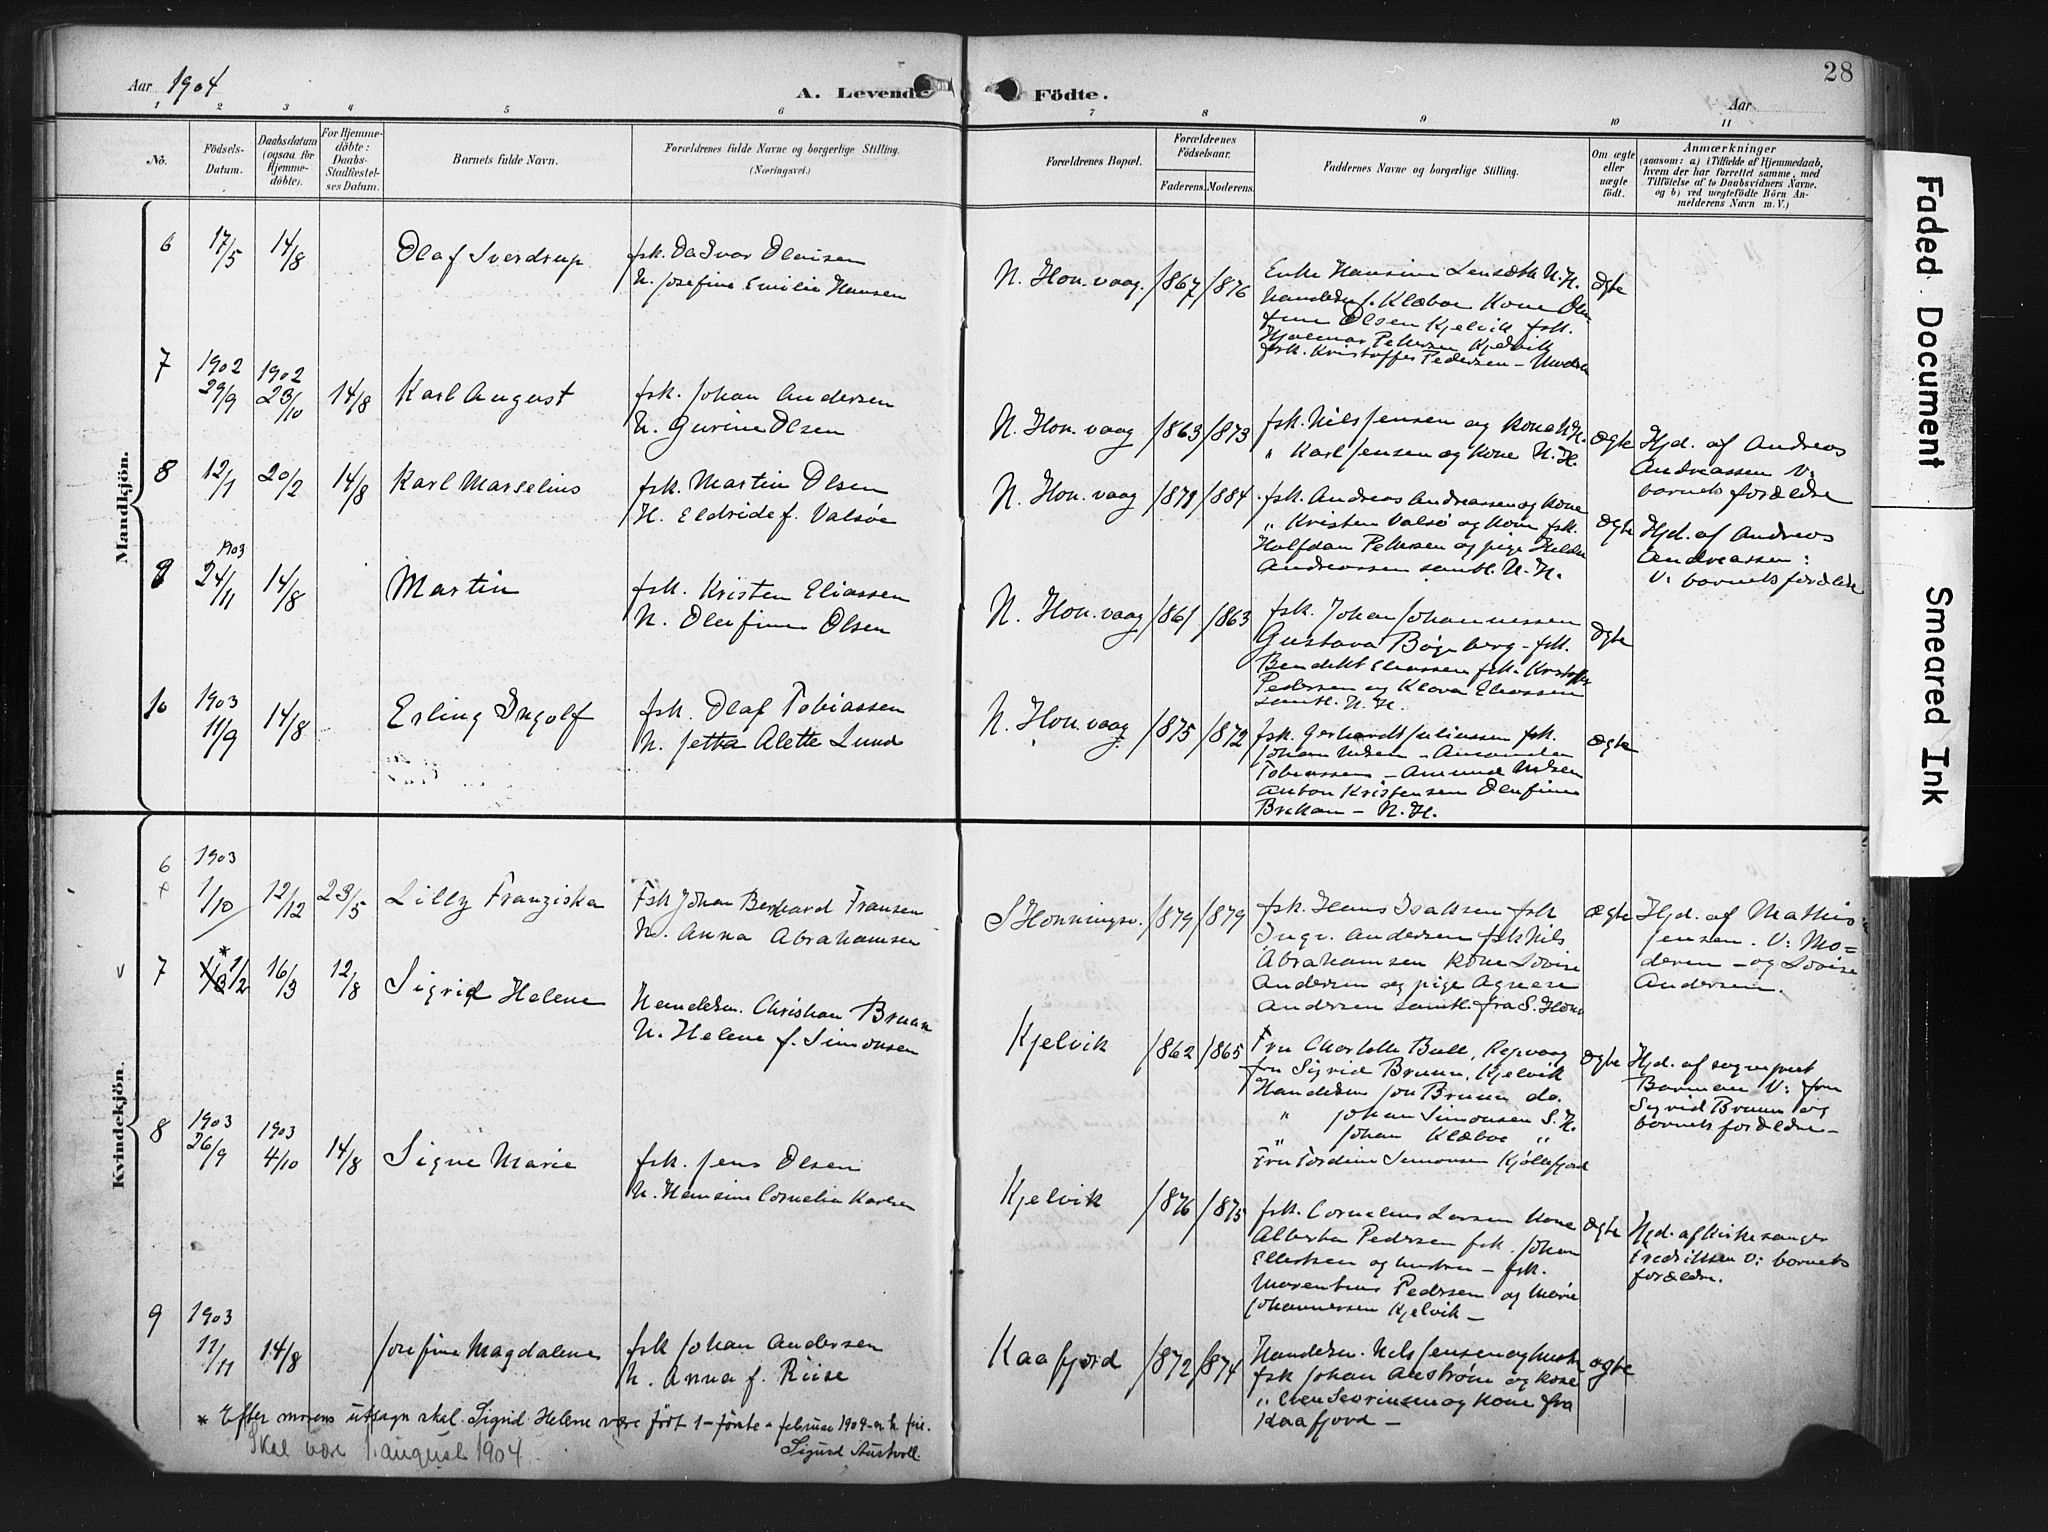 Aar 1904
A. Levende Födte.
Aar
28
1 2 3 4 5 6 7 8 9 10 11
No.
Födsels-Datum.
Daabsdatum (ogsaa for Hjemmedöbte).
For Hjemmedöbte: Daabs-Stadfæstelses Datum.
Barnets fulde Navn.
Forældrenes fulde Navne og borgerlige Stilling.
(Næringsvei.)
Forældrenes Bopæl.
Forældrenes Födselsaar.
Faderens. Moderens.
Faddernes Navne og borgerlige Stilling.
Om ægte eller uægte födt.
Anmærkninger
(saasom: a) i Tilfælde af Hjemmedaab, hvem der har forrettet samme, med Tilföielse af to Daabsvidners Navne. og b) ved uægtefödte Börn Anmelderens Navn m. V.)
Mandkjön.
6 17/5 14/8 Olaf Sverdrup
fsk. Ole Ivar Olaisen
H. Josefine Emilie Hansen
N. Hon.vaag. 1867 1876
Enke Hansine N. H.
Handelsm. J. Klæboe Kone Olu-
fine Olsen Kjelvik fsk.
Hjalmar Pettersen Kjelvik
fsk. Kristoffer Pedersen
ægte
7 1902 29/9 1902 23/10 14/8 Karl August
fsk. Johan Andersen
H. Gurine Olsen
N. Hon.vaag 1863 1873
fsk. Nils Jensen og Kone N.H.
" Karl Jensen og Kone N.H.
ægte
Hjd. af Andreas
Andreassen V:
barnets forældre
8 12/1 20/2 14/8 Karl Marselius
fsk. Martin Olsen
H. Eldride f. Valsöe
N. Hon.vaag 1879 1884
fsk. Andreas Andreassen og Kone
" Kristen Valsö og Kone fsk.
Halfdan Pettersen og pige Hilda
Andreassen samtl. N. H.
ægte
Hjd. af Andreas
Andreassen:
V: barnets forældre
9 1903 24/11 14/8 Martin
fsk. Kristen Eliassen
H. Olufine Olsen
N. Hon.vaag 1861 1863
fsk. Johan Johannessen
Gustava Bögeberg - fsk.
Bendikt Eliassen fsk. Kristoffer
Pedersen og Klara Eliassen
samtl. N. H.
ægte
10 1903 11/9 14/8 Erling Ingolf
fsk. Olaf Tobiassen
H. Jetta Alette Lund
N. Hon.vaag 1875 1872
fsk. Gerhardt Juliussen fsk.
Johan Nilsen - Amanda
Tobiassen - Amund Nilsen
Anton Kristensen Olufine
Brekan - N. H.
ægte
Kvindekjön.
6 1903 1/10 12/12 23/5 Lilly Franziska
Fsk Johan Bernhard Fransen
H. Anna Abrahamsen
S Honningsv. 1879 1879
fsk. Hans Isaksen fsk
Ingv. Andersen fsk Nils
Abrahamsen Kone Lovise
Andersen og pige Agnese
Andersen samtl. fra S. Honv
ægte
Hjd. af Mathis
Jensen. V: Mo=
deren - og Lovise
Andersen.
7 * 1/2 16/3 12/8 Sigrid Helene
Handelsm. Christian Bruun
H. Helene f. Simonsen
Kjelvik 1862 1865
Fru Charlotte Bull, Repvaag
fru Sigrid Bruun, Kjelvik
Handelsm Jon Bruun do.
" Johan Simonsen S. H.
" Johan Klæboe "
Fru Tordine Simonsen Kjöllefjord
ægte
Hjd. af sognepræst
Barman V: fru
Sigrid Bruun og
barnets forældre -
8 1903 26/9 1903 4/10 14/8 Signe Marie
fsk. Jens Olsen
H. Hansine Cornelia Karlsen
Kjelvik 1876 1875
fsk. Cornelius Larsen Kone
Alberta Pedersen fsk. Johan
Ellertsen og hustru - fsk.
Morentius Pedersen og Marie
Johannessen Kjelvik -
ægte
Hjd. af Kirkesanger
Fredriksen V: barnets
forældre.
9 1903 11/11 14/8 Josefine Magdalene
fsk Johan Andersen
H. Anna f. Riise
Kaafjord 1872 1874
Handelsm. Nils Jensen og hustr
fsk Johan og Kone
" Sven Sevrinsen og Kone fra
Kaafjord -
ægte
* Efter morens utsagn skal Sigrid Helene være födt 1 - förste - februar 1904
Sigurd Austvoll
Skal være 1. august 1904.
Faded Document
Smeared Ink